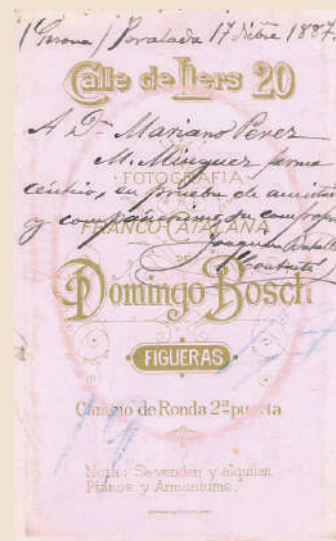 (Gerona) Peralada 17 Dicbre 1887.
Calle de Llers 20
A Dn Mariano Perez
M. Minguez farma
ceutico, en prueba de amistad
FOTOGRAFIA
y compañerismo su
FRANCO-CATALANA
Joaquin
Domingo Bosch
FIGUERAS
Camino de Ronda 2ª puerta
Nota: Se venden y alquilan
Pianos y Armoniums.